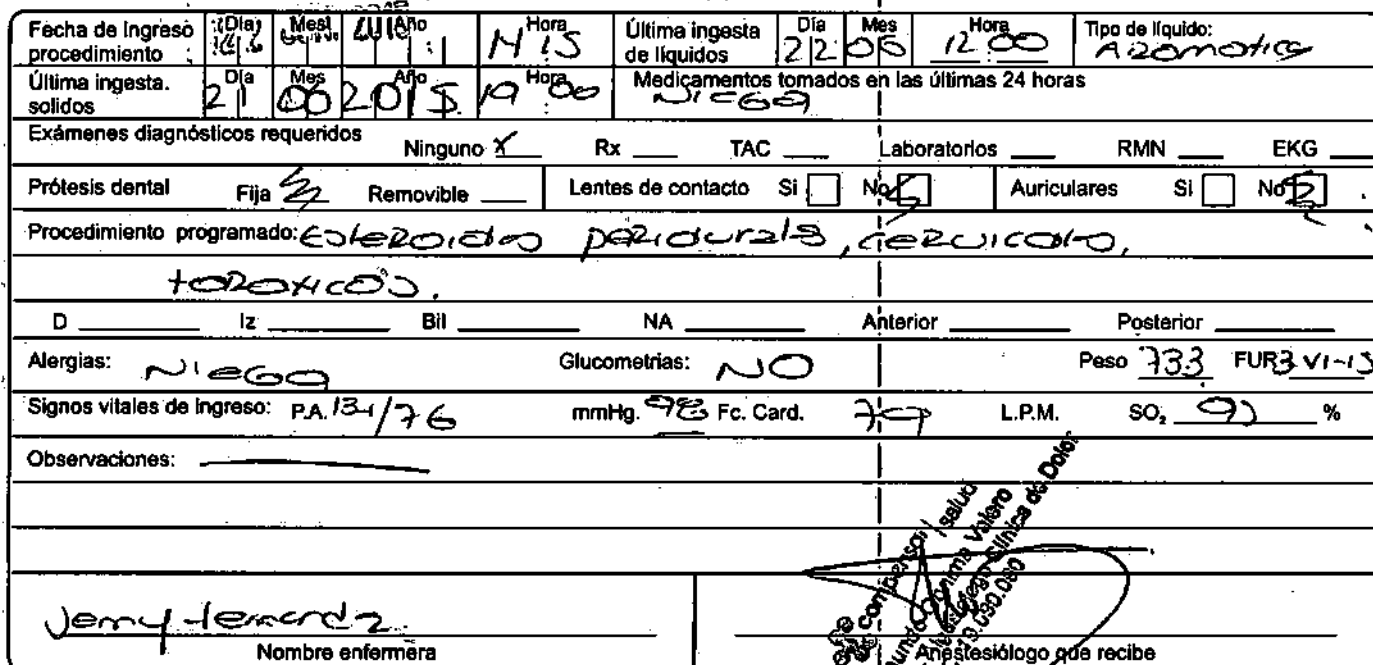 Fecha de Ingreso procedimiento Día Mes Año Hora Última ingesta de líquidos Día 22 Mes 06 Hora 12:00 Tipo de líquido: Aromatica
Última ingesta. solidos Día 21 Mes 06 Año 2015 Hora 19:00 Medicamentos tomados en las últimas 24 horas Niega
Exámenes diagnósticos requeridos Ninguno X Rx TAC Laboratorios RMN EKG
Prótesis dental Fija Removible Lentes de contacto Si No Auriculares Si No
Procedimiento programado: Esteroides peridurals, cervicales,
toroxicos.
D Iz Bil NA Anterior Posterior
Alergias: Niega Glucometrias: NO Peso 73.3 FUR 3 VI-15
Signos vitales de Ingreso: P.A. 134/76 mmHg. 98 Fc. Card. L.P.M. SO₂ %
Observaciones:
compensar | salud
Valero
Clínica de Dolor
19.090.080
Nombre enfermera Anestesiólogo que recibe